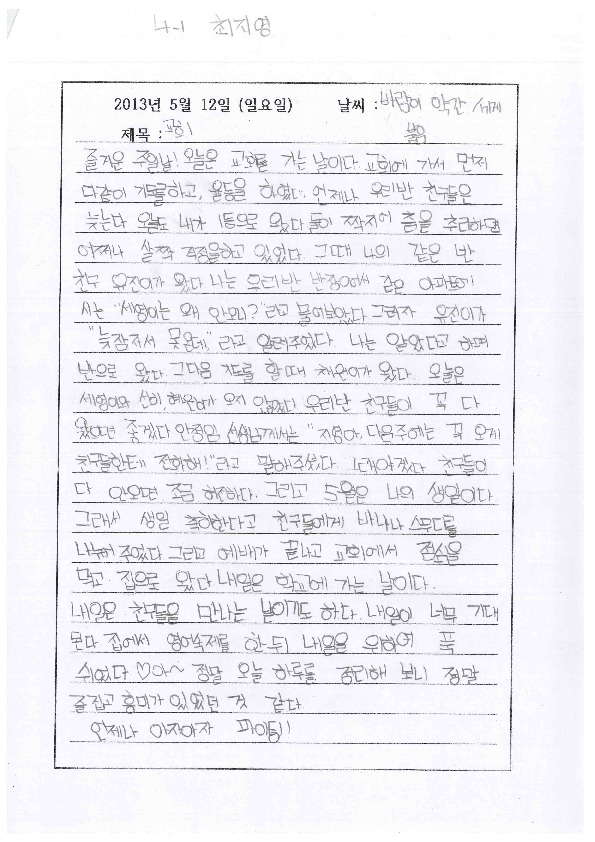 4-1 최지영
2013년 5월 12일 (일요일) 날씨 : 바람이 약간 세게
제목 : 붊
즐거운 주일날! 오늘은 교회를 가는 날이다. 교회에 가서 먼저
다같이 기도를하고, 율동을 하였다. 언제나 우리반 친구들은
늦는다 오늘도 내가 1등으로 왔다 둘이 짝지어 춤을 추라하면
어쩌나 살짝 걱정을하고 있었다. 그때 나의 같은 반
친구 유진이가 왔다 나는 우리반 반장이여서 같은 아파트에
사는 "세영이는 왜 안오니?"라고 물어보았다 그러자 유진이가
"늦잠자서 못온데" 라고 알려주었다 나는 알았다고 하며
반으로 왔다. 그다음 기도를 할 때 채원이가 왔다. 오늘은
세영이와 혜원이가 오지 않았다 우리반 친구들이 꼭 다
왔으면 좋겠다 선생님께서는 "지영아, 다음주에는 꼭 오게
친구들한테 전화해!"라고 말해주셨다. 그래야겠다 친구들이
다 안오면 조금 허전하다. 그리고 5월은 나의 생일이다
그래서 생일 축하한다고 친구들에게 바나나 스무디를
나누어 주었다 그리고 예배가 끝나고 교회에서 점심을
먹고 집으로 왔다 내일은 학교에 가는 날이다.
내일은 친구들을 만나는 날이기도 하다. 내일이 너무 기대
된다 집에서 영어숙제를 한 뒤 내일을 위하여 푹
쉬었다 ♡아~ 정말 오늘 하루를 정리해 보니 정말
즐겁고 흥미가 있었던 것 같다
언제나 아자아자 파이팅!